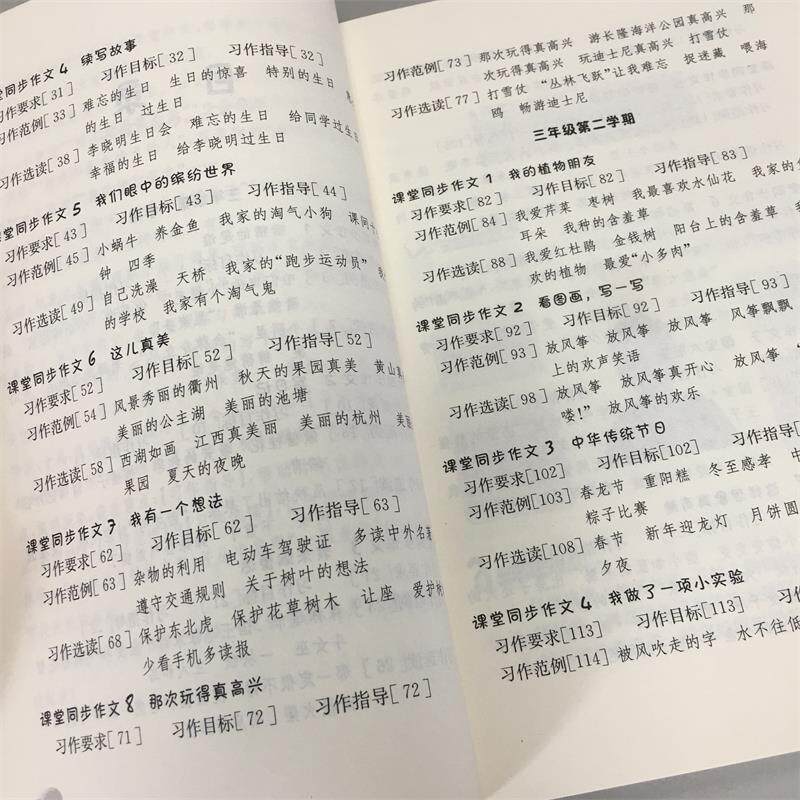 课堂同步作文4 续写故事
习作要求[31] 习作目标[32] 习作指导[32]
习作范例[33] 难忘的生日 生日的惊喜 特别的生日
的生日 过生日
习作选读[38] 李晓明生日会 难忘的生日 给同学过生日
幸福的生日 给李晓明过生日
课堂同步作文5 我们眼中的缤纷世界
习作要求[43] 习作目标[43] 习作指导[44]
习作范例[45] 小蜗牛 养金鱼 我家的淘气小狗 课间十
钟 四季
习作选读[49] 自己洗澡 天桥 我家的“跑步运动员”
的学校 我家有个淘气鬼
课堂同步作文6 这儿真美
习作要求[52] 习作目标[52] 习作指导[52]
习作范例[54] 风景秀丽的衢州 秋天的果园真美 黄山真
美丽的公主湖 美丽的池塘
习作选读[58] 西湖如画 江西真美丽 美丽的杭州 美丽
果园 夏天的夜晚
课堂同步作文7 我有一个想法
习作要求[62] 习作目标[62] 习作指导[63]
习作范例[63] 杂物的利用 电动车驾驶证 多读中外名著
遵守交通规则 关于树叶的想法
习作选读[68] 保护东北虎 保护花草树木 让座 爱护
少看手机多读报
课堂同步作文8 那次玩得真高兴
习作要求[71] 习作目标[72] 习作指导[72]
习作范例[73] 那次玩得真高兴 游长隆海洋公园真高兴 那
次玩得真高兴 玩迪士尼真高兴 打雪仗
习作选读[77] 打雪仗 “丛林飞跃”让我难忘 捉迷藏 喂海
鸥 畅游迪士尼
三年级第二学期
课堂同步作文1 我的植物朋友
习作要求[82] 习作目标[82] 习作指导[83]
习作范例[84] 我爱芹菜 枣树 我最喜欢水仙花 我家的
耳朵 我种的含羞草
习作选读[88] 我爱红杜鹃 金钱树 阳台上的含羞草 我
欢的植物 最爱“小多肉”
课堂同步作文2 看图画，写一写
习作要求[92] 习作目标[92] 习作指导[93]
习作范例[93] 放风筝 放风筝 放风筝 风筝飘飘
上的欢声笑语
习作选读[98] 放风筝 放风筝真开心 放风筝 “
喽！” 放风筝的欢乐
课堂同步作文3 中华传统节日
习作要求[102] 习作目标[102] 习作指导
习作范例[103] 春龙节 重阳糕 冬至感孝 中
粽子比赛
习作选读[108] 春节 新年迎龙灯 月饼圆
夕夜
课堂同步作文4 我做了一项小实验
习作要求[113] 习作目标[113] 习
习作范例[114] 被风吹走的字 水不往低